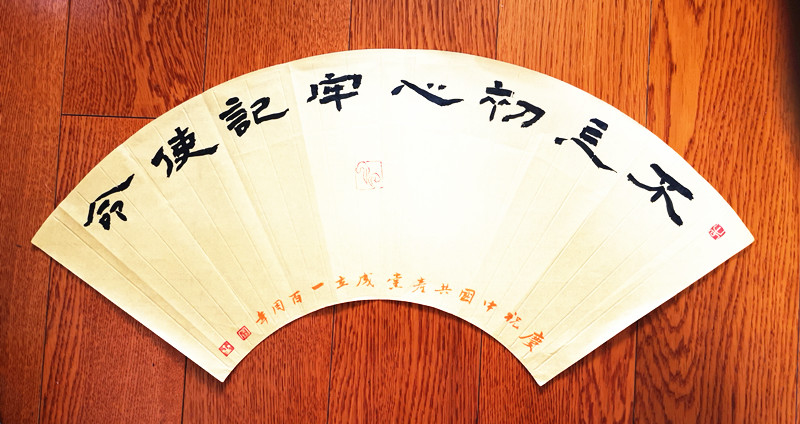 不忘初心牢記使命
慶祝中國共產党成立一百周年